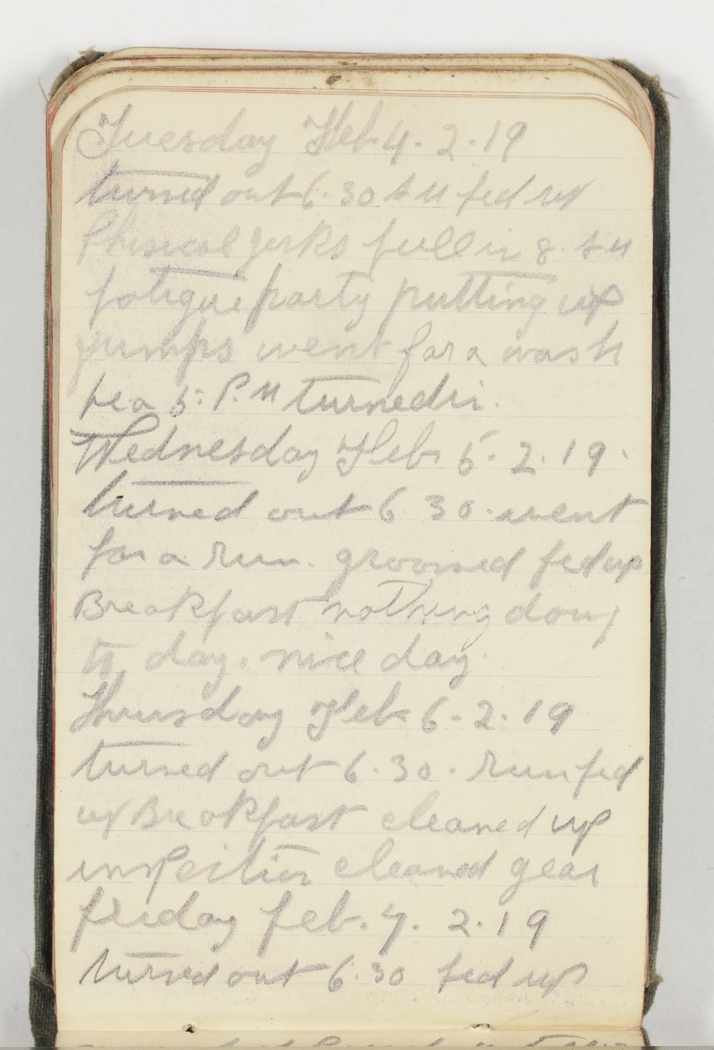 Tuesday Feb. 4. 2. 19
turned out 6.30 A M fed up
Phisical jerks fell in 8. A M
fatigue party putting up
jumps went for a wash
tea 5. P.M turned in.
Wednesday Feb. 5. 2. 19.
turned out 6 30. went
for a run. groomed fed up
Breakfast nothing doing
to day. nice day.
Thursday Feb 6. 2. 19
turned out 6. 30. run fed
up Breakfast cleaned up
inspection cleaned gear
friday feb. 7. 2. 19
turned out 6.30 fed up